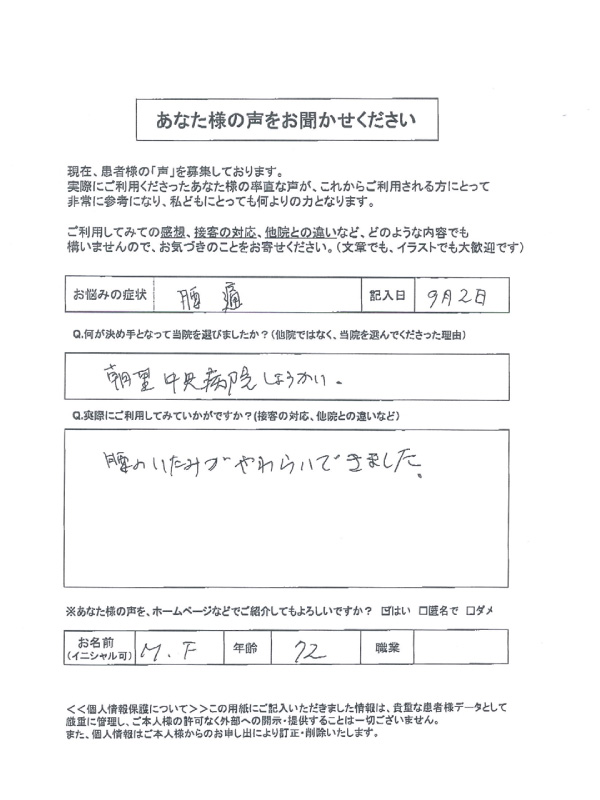 あなた様の声をお聞かせください
現在、患者様の「声」を募集しております。
実際にご利用くださったあなた様の率直な声が、これからご利用される方にとって
非常に参考になり、私どもにとっても何よりの力となります。
ご利用してみての感想、接客の対応、他院との違いなど、どのような内容でも
構いませんので、お気づきのことをお寄せください。（文章でも、イラストでも大歓迎です）
お悩みの症状 腰痛 記入日 9月2日
Q.何が決め手となって当院を選びましたか？（他院ではなく、当院を選んでくださった理由）
中央病院しょうかい。
Q.実際にご利用してみていかがですか？(接客の対応、他院との違いなど)
腰のいたみがやわらいできました。
※あなた様の声を、ホームページなどでご紹介してもよろしいですか？ ☑はい □匿名で □ダメ
お名前 M.F 年齢 72 職業
（イニシャル可）
＜＜個人情報保護について＞＞この用紙にご記入いただきました情報は、貴重な患者様データとして
厳重に管理し、ご本人様の許可なく外部への開示・提供することは一切ございません。
また、個人情報はご本人様からのお申し出により訂正・削除いたします。